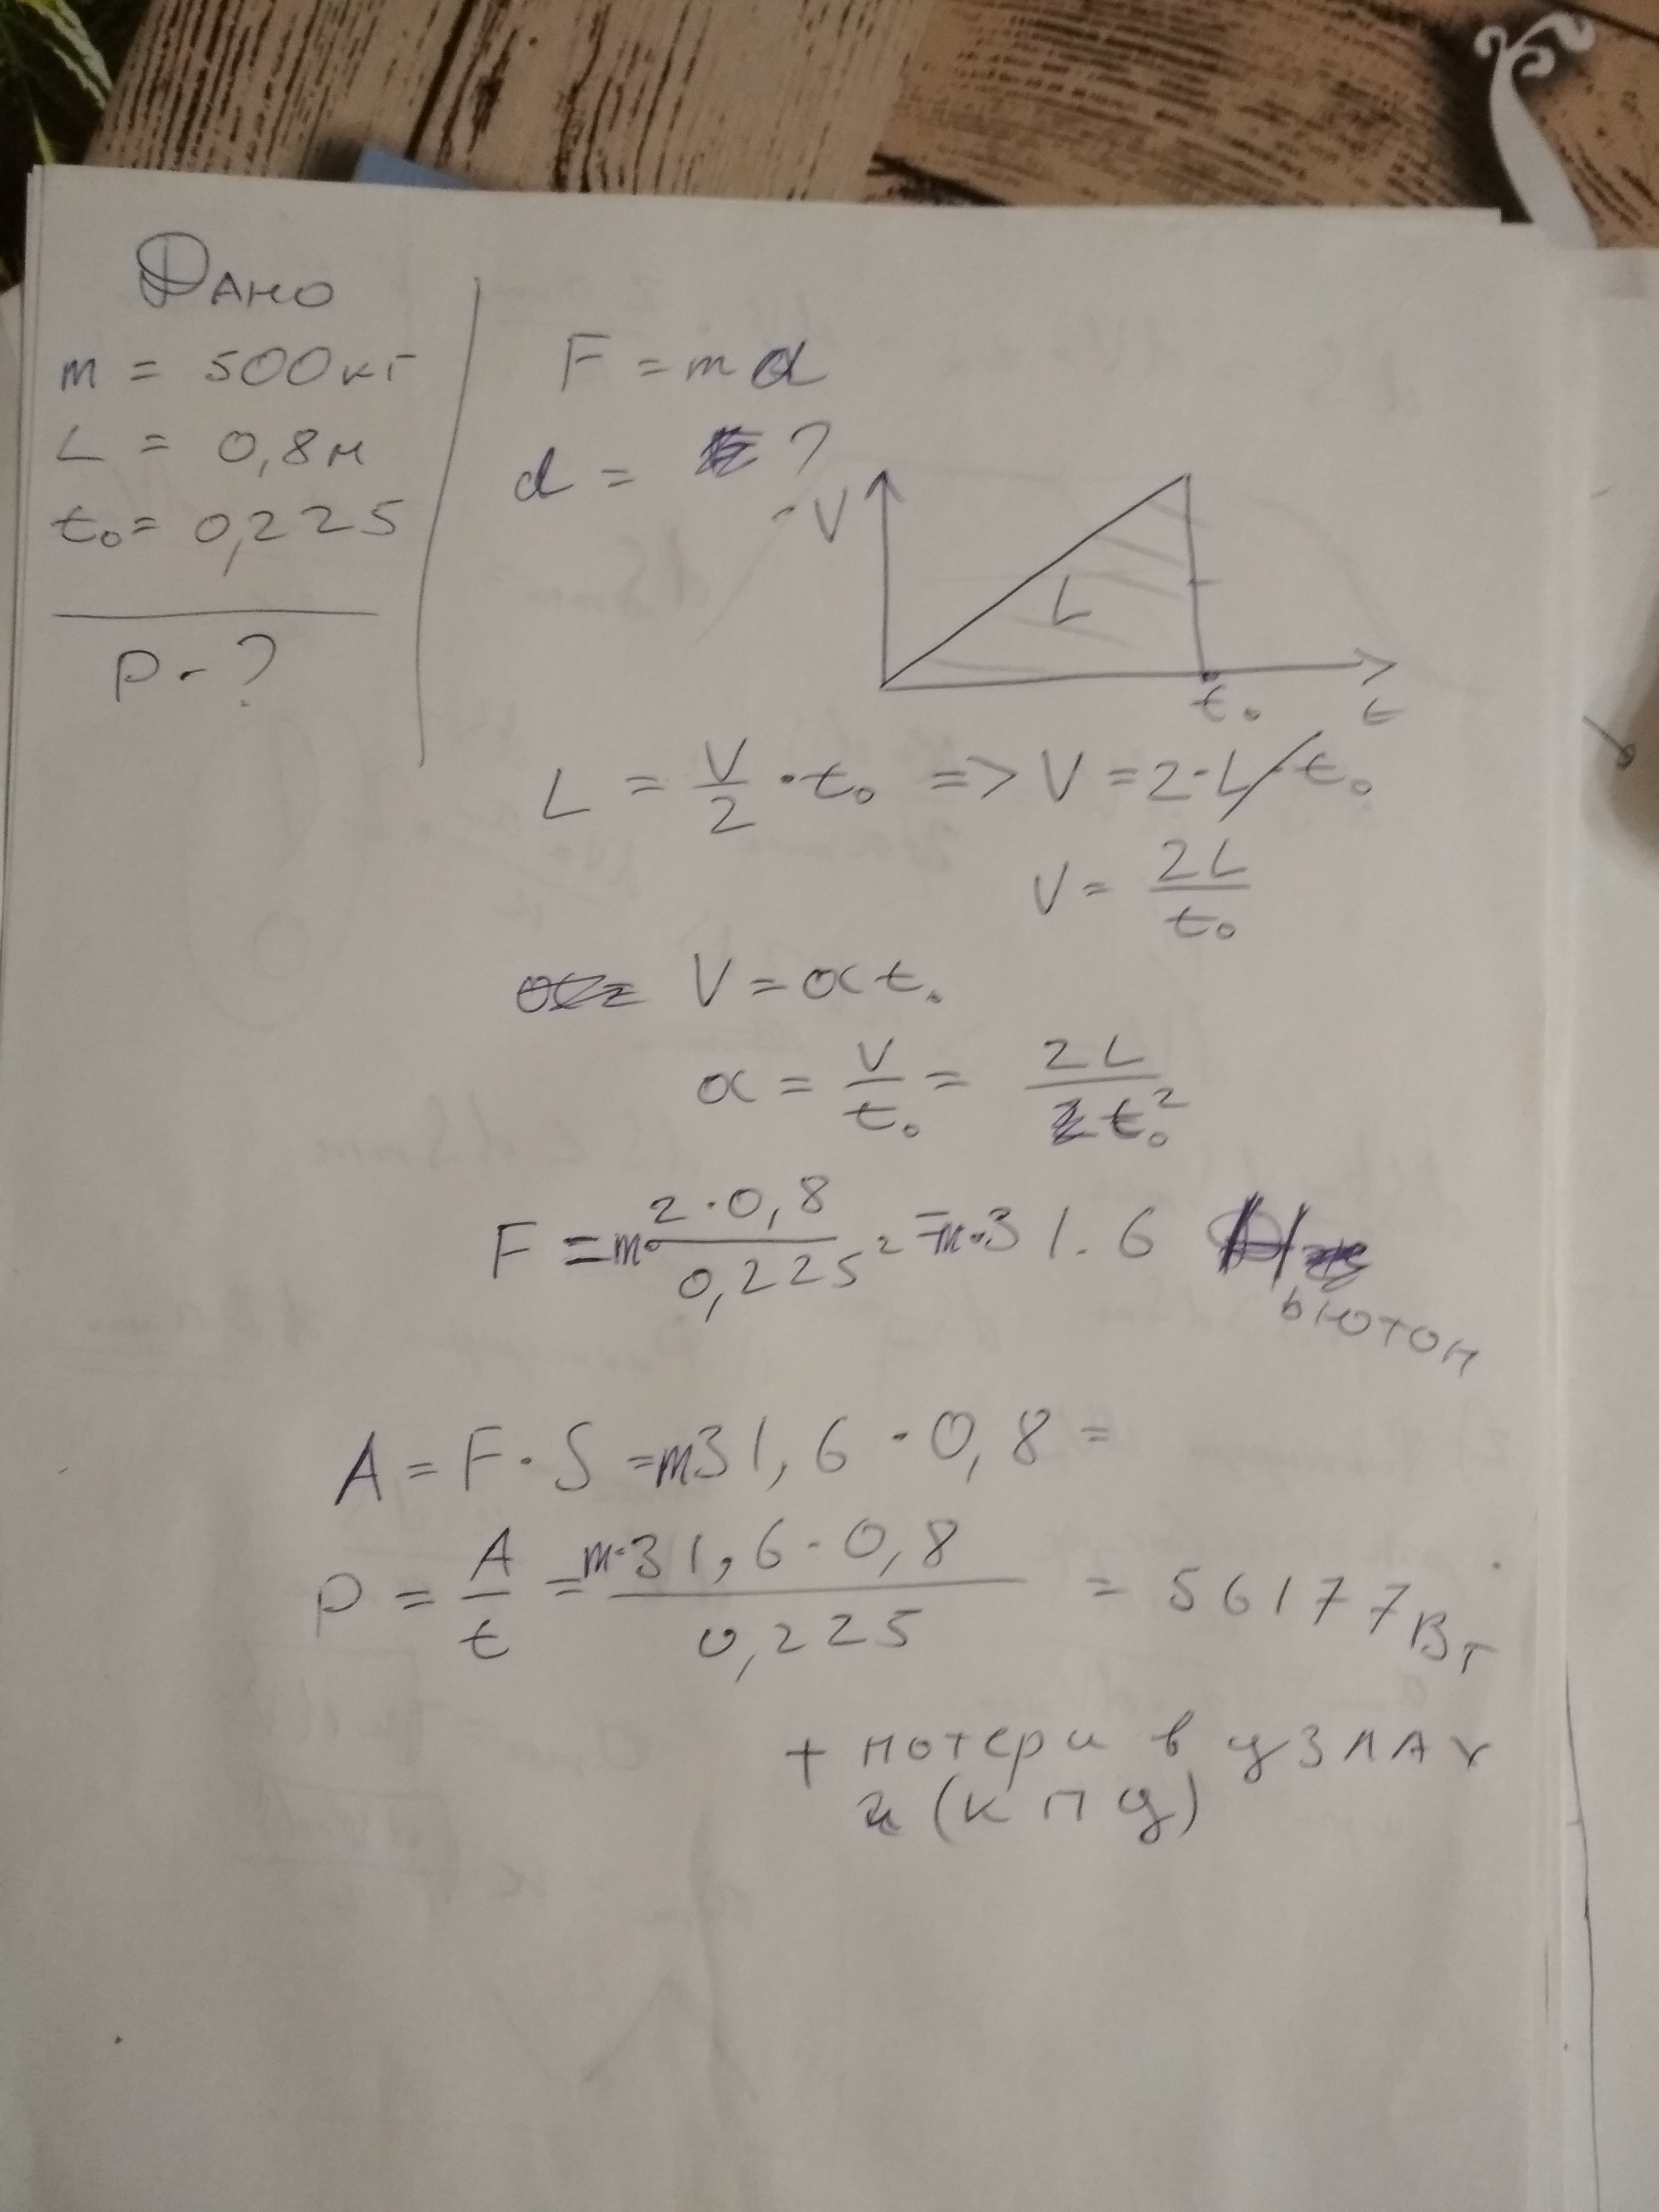 Дано
m = 500кг
L = 0,8м
t₀ = 0,225
P - ?
F = ma
a = ?
V
L
t₀ t
L = V/2 · t₀ => V = 2·L/t₀
V = 2L/t₀
V = at₀
a = V/t₀ = 2L/t₀²
F = m· 2·0,8/0,225² = m·31.6 Ньютон
A = F·S = m31,6·0,8 =
P = A/t = m·31,6·0,8/0,225 = 56177Вт
+ потери в узлах
(кпд)